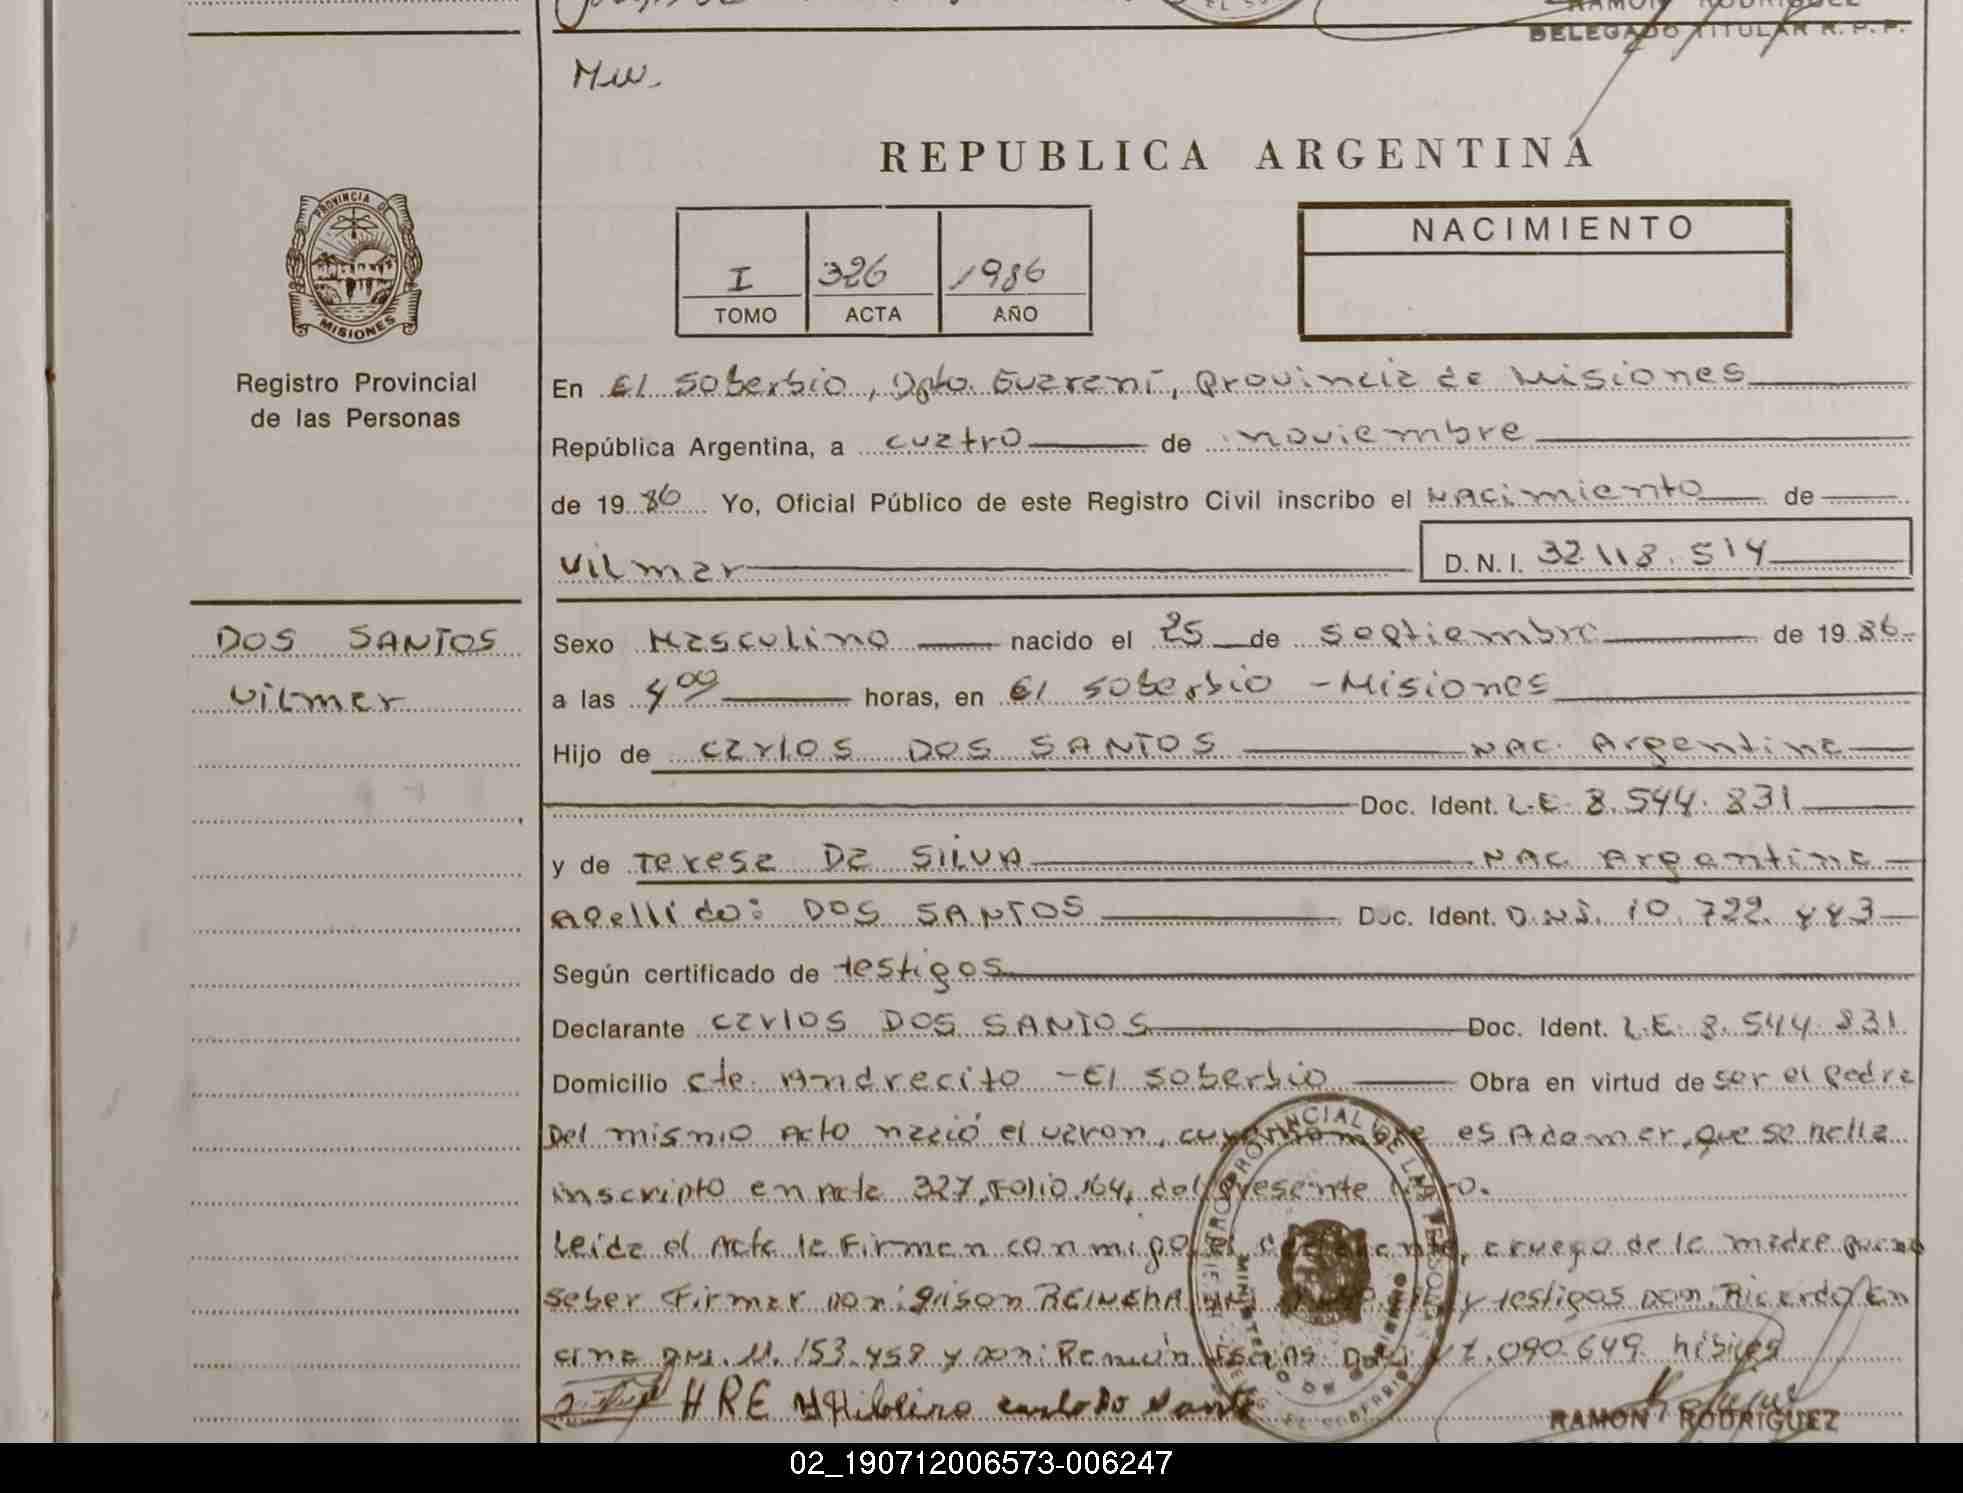 RAMON RODRIGUEZ
DELEGADO TITULAR R. P. P.
REPUBLICA ARGENTINA
PROVINCIA DE
MISIONES
Registro Provincial
de las Personas
I 326 1986
TOMO ACTA AÑO
NACIMIENTO
En El Soberbio, Dpto. Guarani, Provincia de Misiones
República Argentina, a cuatro de noviembre
de 19 86 Yo, Oficial Público de este Registro Civil inscribo el Nacimiento de
Vilmar D.N.I. 32.118.514
DOS SANTOS
Vilmar
Sexo Masculino nacido el 25 de Septiembre de 19 86
a las 4 00 horas, en El Soberbio - Misiones
Hijo de Carlos DOS SANTOS NAC. Argentina
Doc. Ident. L.E. 8.544.831
y de Teresa Da SILVA NAC. Argentina
Apellido: DOS SANTOS Doc. Ident. D.N.I. 10.722.443
Según certificado de testigos
Declarante Carlos DOS SANTOS Doc. Ident. L.E. 8.544.831
Domicilio Cte. Andrecito - El Soberbio Obra en virtud de ser el padre
Del mismo Acto nació el varon, cuyo nombre es Adamar, que se halla
inscripto en Acta 327, Folio 164, del presente Libro.
Leida el Acta la Firman conmigo, el declarante, a ruego de la madre por no
saber Firmar don: y testigos Don. Ricardo En
cina DNI. 11.153.458 y don: Ramón 7.090.649 hábiles
HRE Carlo Do Santo
RAMON RODRIGUEZ
02_190712006573-006247